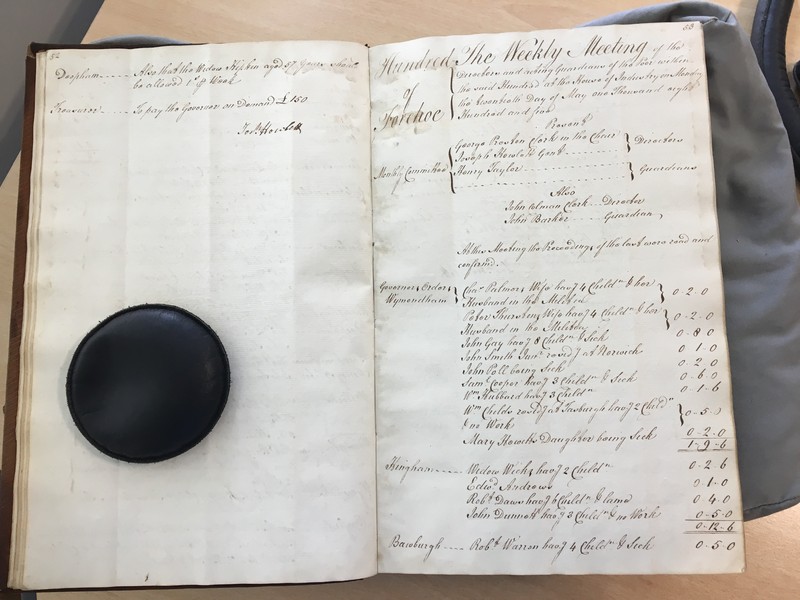 52
Deopham ---- Also that the Widow Stipkin aged 57 Years should
be allowed 1s. P Week
Treasurer --- To pay the Governor on Demand £150
Jos. Howlett
53
Hundred of Forehoe
The Weekly Meeting of the
Directors and acting Guardians of the Poor within
the said Hundred at the House of Industry on Monday
the twentieth Day of May one Thousand eight
Hundred and
Present
Monthly Committee
George Preston Clerk in the Chair
Joseph Howlett Gent
Directors
Henry Taylor
Guardians
Also
John Colman Clerk --- Director
John Barker ---- Guardian
At this Meeting the Proceedings of the last were read and
confirmed.
Governors Orders
Wymondham
Chas. Palmers Wife havg 4 Childn & her
Husband in the Militia
0-2-0
Peter Thurstons Wife havg 4 Childn & her
Husband in the Militia
0-2-0
John Gay havg 8 Childn & Sick 0-8-0
John Smith Junr. residg at Norwich 0 1-0
John Poll being Sick 0-2-0
Sam Cooper havg 3 Childn & Sick 0-6-0
Wm Hubbard havg 3 Childn 0-1-6
Wm Childs residg at Tasburgh havg 2 Childn
& no Work
0-5-0
Mary Howitts Daughter being Sick 0-2-0
1-9-6
Hingham ---- Widow Wicks havg 2 Childn 0-2 6
Edwd. Andrews 0 1-0
Robt. Daws havg 6 Childn & lame 0-4-0
John Dunnett havg 3 Childn & no Work 0-5-0
0-12-6
Bawburgh ---- Robt. Warren havg 4 Childn & Sick 0-5-0